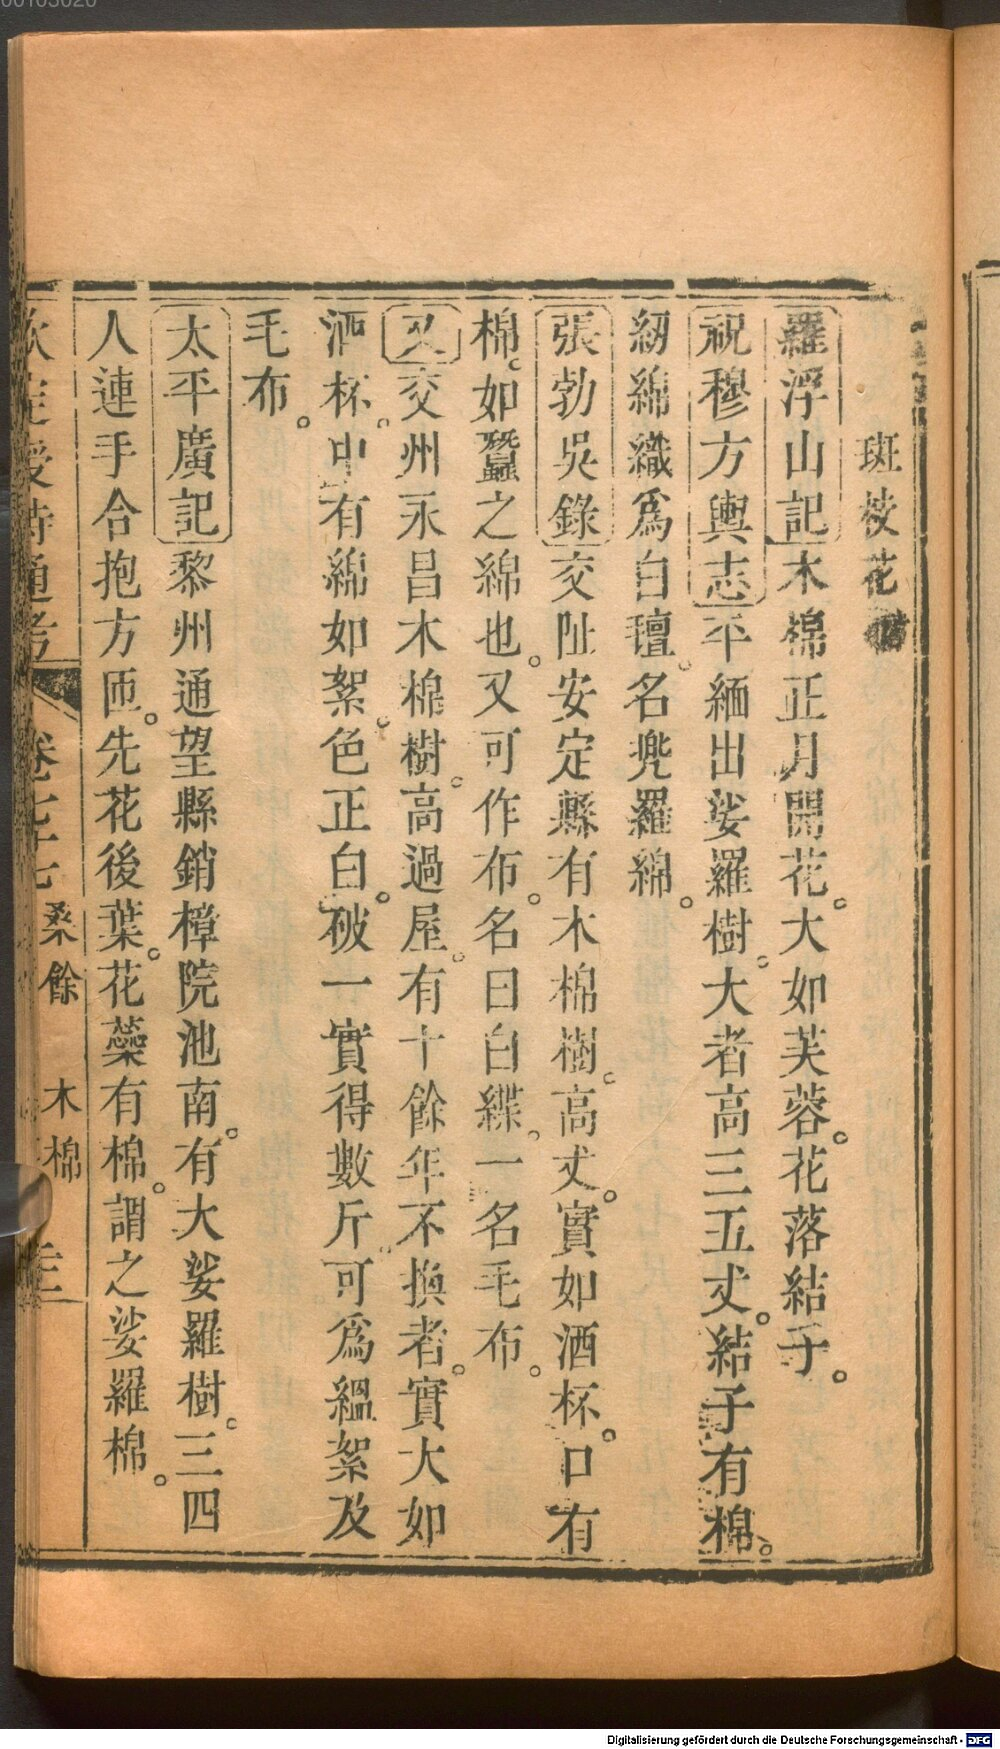 00103020
斑枝花附
羅浮山記木棉正月開花。大如芙蓉。花落結子。
祝穆方輿志平緬出娑羅樹。大者高三五丈。結子有棉。
紉綿織爲白氊。名兠羅綿。
張勃吳錄交阯安定縣有木棉樹。高丈。實如酒杯。口有
棉。如蠶之綿也。又可作布。名曰白緤。一名毛布。
又交州永昌木棉樹。高過屋。有十餘年不換者。實大如
酒杯。中有綿如絮。色正白。破一實得數斤。可爲縕絮及
毛布。
太平廣記黎州通望縣銷樟院池南。有大娑羅樹。三四
人連手合抱方匝。先花後葉。花蘂有棉。謂之娑羅棉。
欽定授時通考 卷七十七 桑餘 木棉
Digitalisierung gefördert durch die Deutsche Forschungsgemeinschaft - DFG